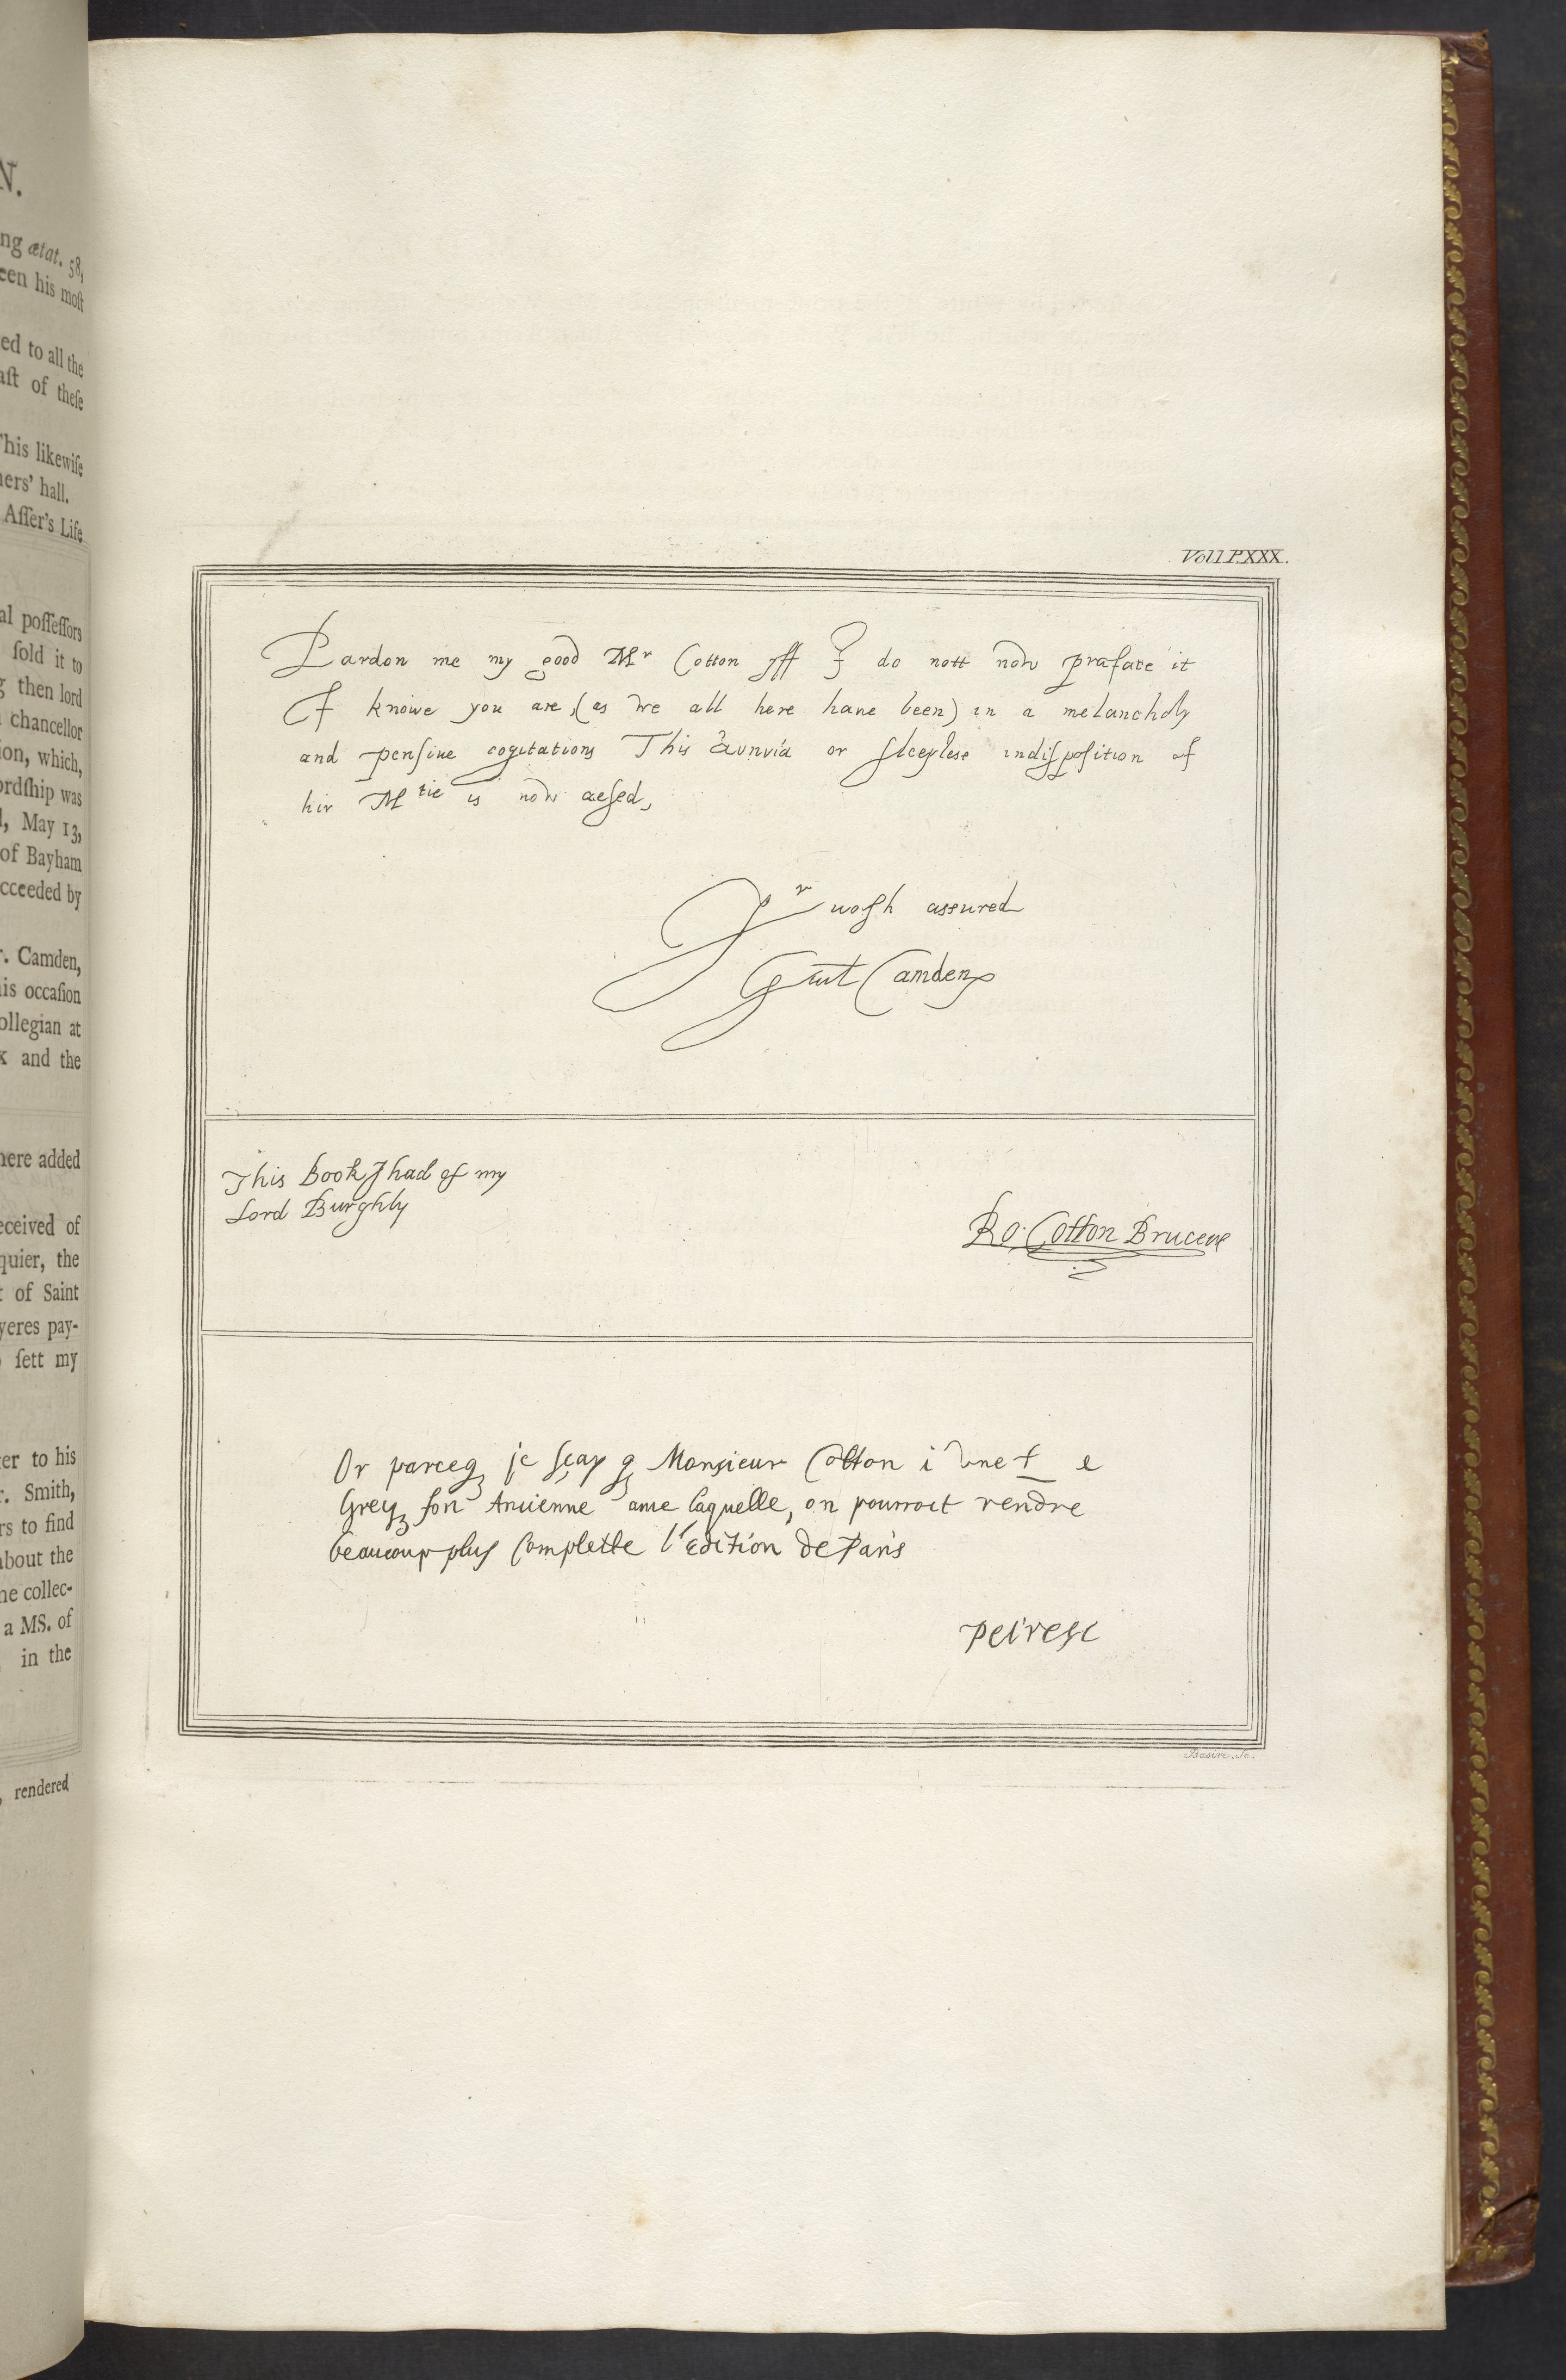 N.
ng ætat. 58,
een his moſt
ed to all the
aſt of theſe
This likewiſe
ners' hall.
Aſſer's Life
al poſſeſſors
ſold it to
g then lord
chancellor
ion, which,
ordſhip was
l, May 13,
of Bayham
cceeded by
r. Camden,
is occaſion
ollegian at
x and the
here added
eceived of
quier, the
t of Saint
yeres pay-
ſett my
ter to his
r. Smith,
rs to find
about the
ne collec-
a MS. of
in the
, rendered
Vol I. P. XXX.
Pardon me my good Mr Cotton yff I do nott now præface it
I knowe you are, (as we all here haue been) in a melancholy
and penſiue cogitations This or ſleepleſe indiſpoſition of
hir Mtie is now
Yr assured
Camden
This Book I had of my
Lord Burghly
Ro: Cotton Bruceus
Or parceq je ſçay q Monsieur Cotton
ancienne laquelle, on pourroit rendre
beaucoup plus Complette l'Edition de Paris
Peiresc
Basire. Sc.